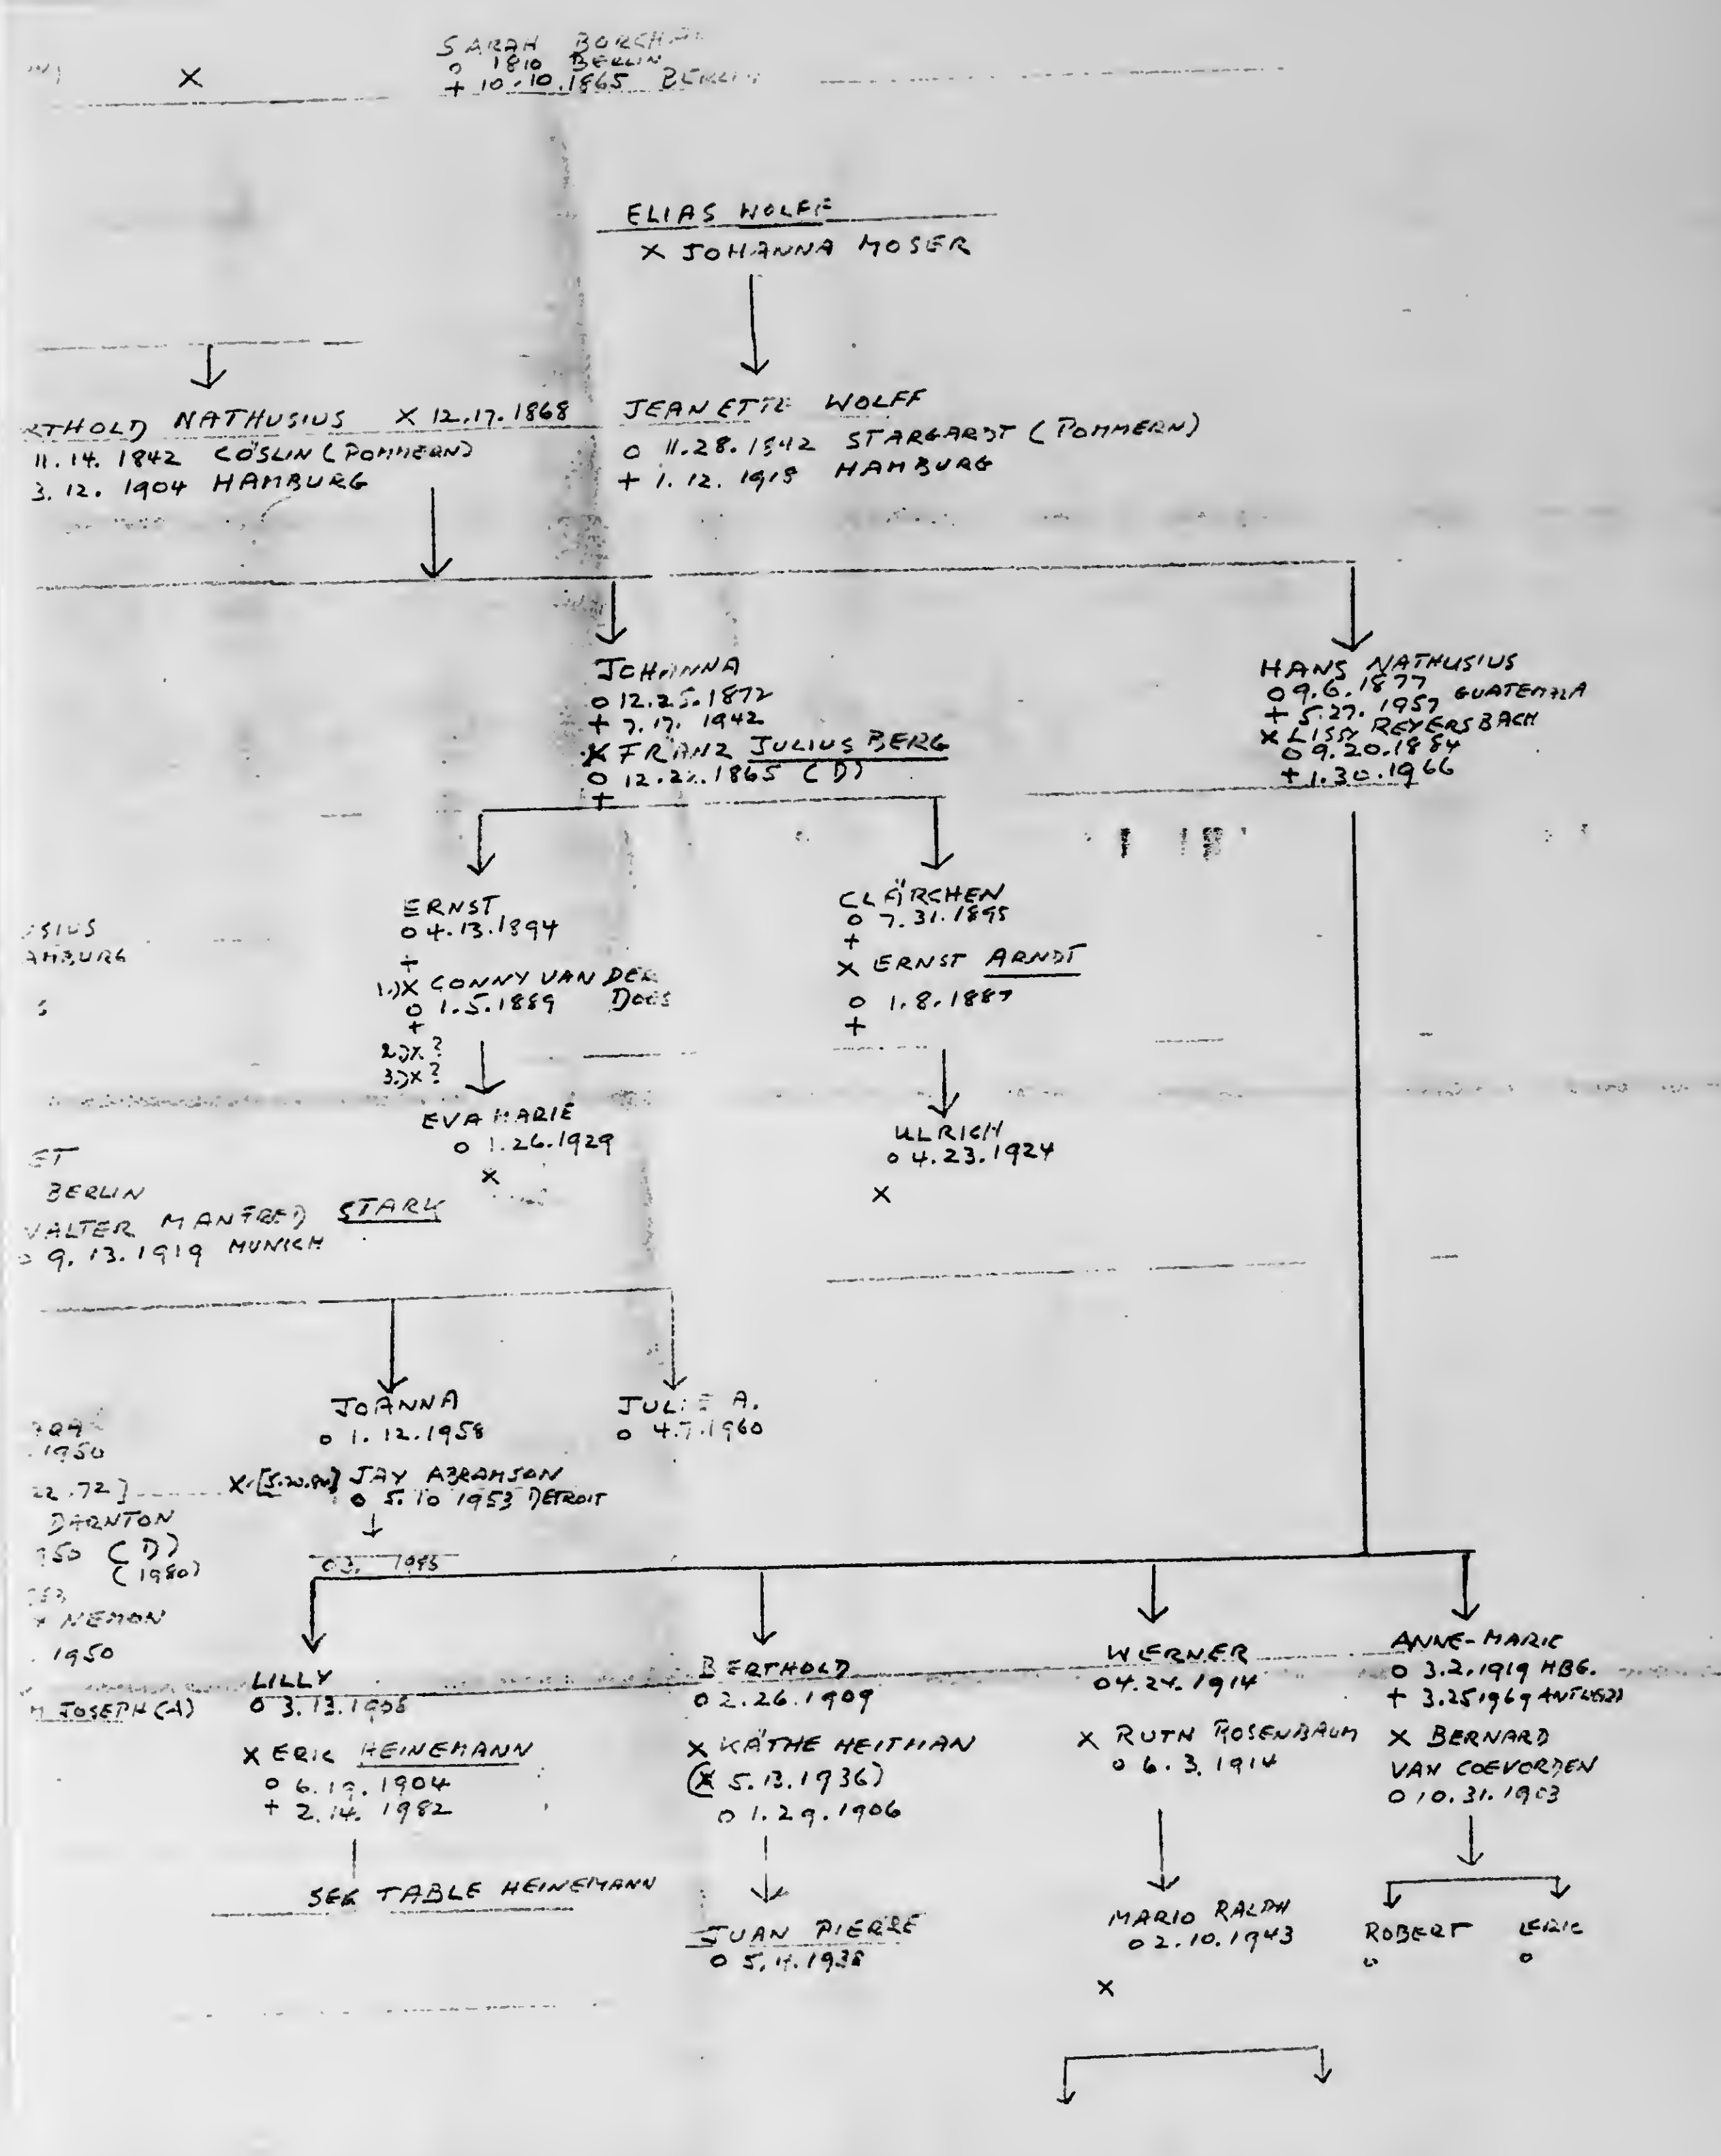 SARAH
o 1810 BERLIN
+ 10.10.1865 BERLIN
X
ELIAS WOLFF
X JOHANNA MOSER
RTHOLD NATHUSIUS X 12.17.1868
11.14. 1842 CÖSLIN (POMMERN)
3. 12. 1904 HAMBURG
JEANETTE WOLFF
o 11.28.1842 STARGARDT (POMMERN)
+ 1. 12. 1918 HAMBURG
JOHANNA
o 12.25.1872
+ 7.17. 1942
X FRANZ JULIUS BERG
o 12.22.1865 (D)
+
HANS NATHUSIUS
o 9.6.1877
+ 5.27.1957 GUATEMALA
X LISSY REYERSBACH
o 9.20.1884
+ 1.30.1966
ERNST
o 4.13.1894
+
1.)X CONNY VAN DER
DOES
o 1.5.1889
+
2.)X?
3.)X?
CLÄRCHEN
o 7.31.1895
+
X ERNST ARNDT
o 1.8.1887
+
SIUS
AMBURG
S
EVA MARIE
o 1.26.1929
X
ULRICH
o 4.23.1924
X
ET
BERLIN
WALTER MANFRED STARK
o 9.13.1919 MUNICH
JOANNA
o 1.12.1958
X JAY ABRAMSON
o 5.10 1953 DETROIT
JULIE A.
o 4.7.1960
1950
22.72]
DARNTON
950 (D)
(1980)
X NEMON
1950
M JOSEPH (A)
LILLY
o 3.13.1908
X ERIC HEINEMANN
o 6.19.1904
+ 2.14. 1982
SEE TABLE HEINEMANN
BERTHOLD
o 2.26.1909
X KÄTHE HEITMAN
(X 5.13.1936)
o 1.29.1906
JUAN PIERRE
o 5.4.1938
WERNER
o 4.24.1914
X RUTH ROSENBAUM
o 6.3.1914
MARIO RALPH
o 2.10.1943
X
ANNE-MARIE
o 3.2.1919 HBG.
+ 3.25 1969
X BERNARD
VAN COEVORDEN
o 10.31.1903
ROBERT
o
ERIC
o